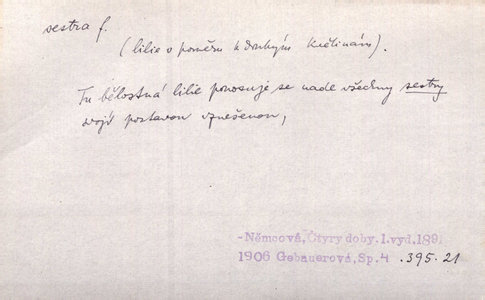 sestra f.
(lilie v poměru k druhým květinám).
Tu bělostná lilie povznosuje se nade všechny sestry
svojí postavou vznešenou,
-Němcová, Čtyry doby.1.vyd.1891
1906 Gebauerová,Sp.4 .395.21